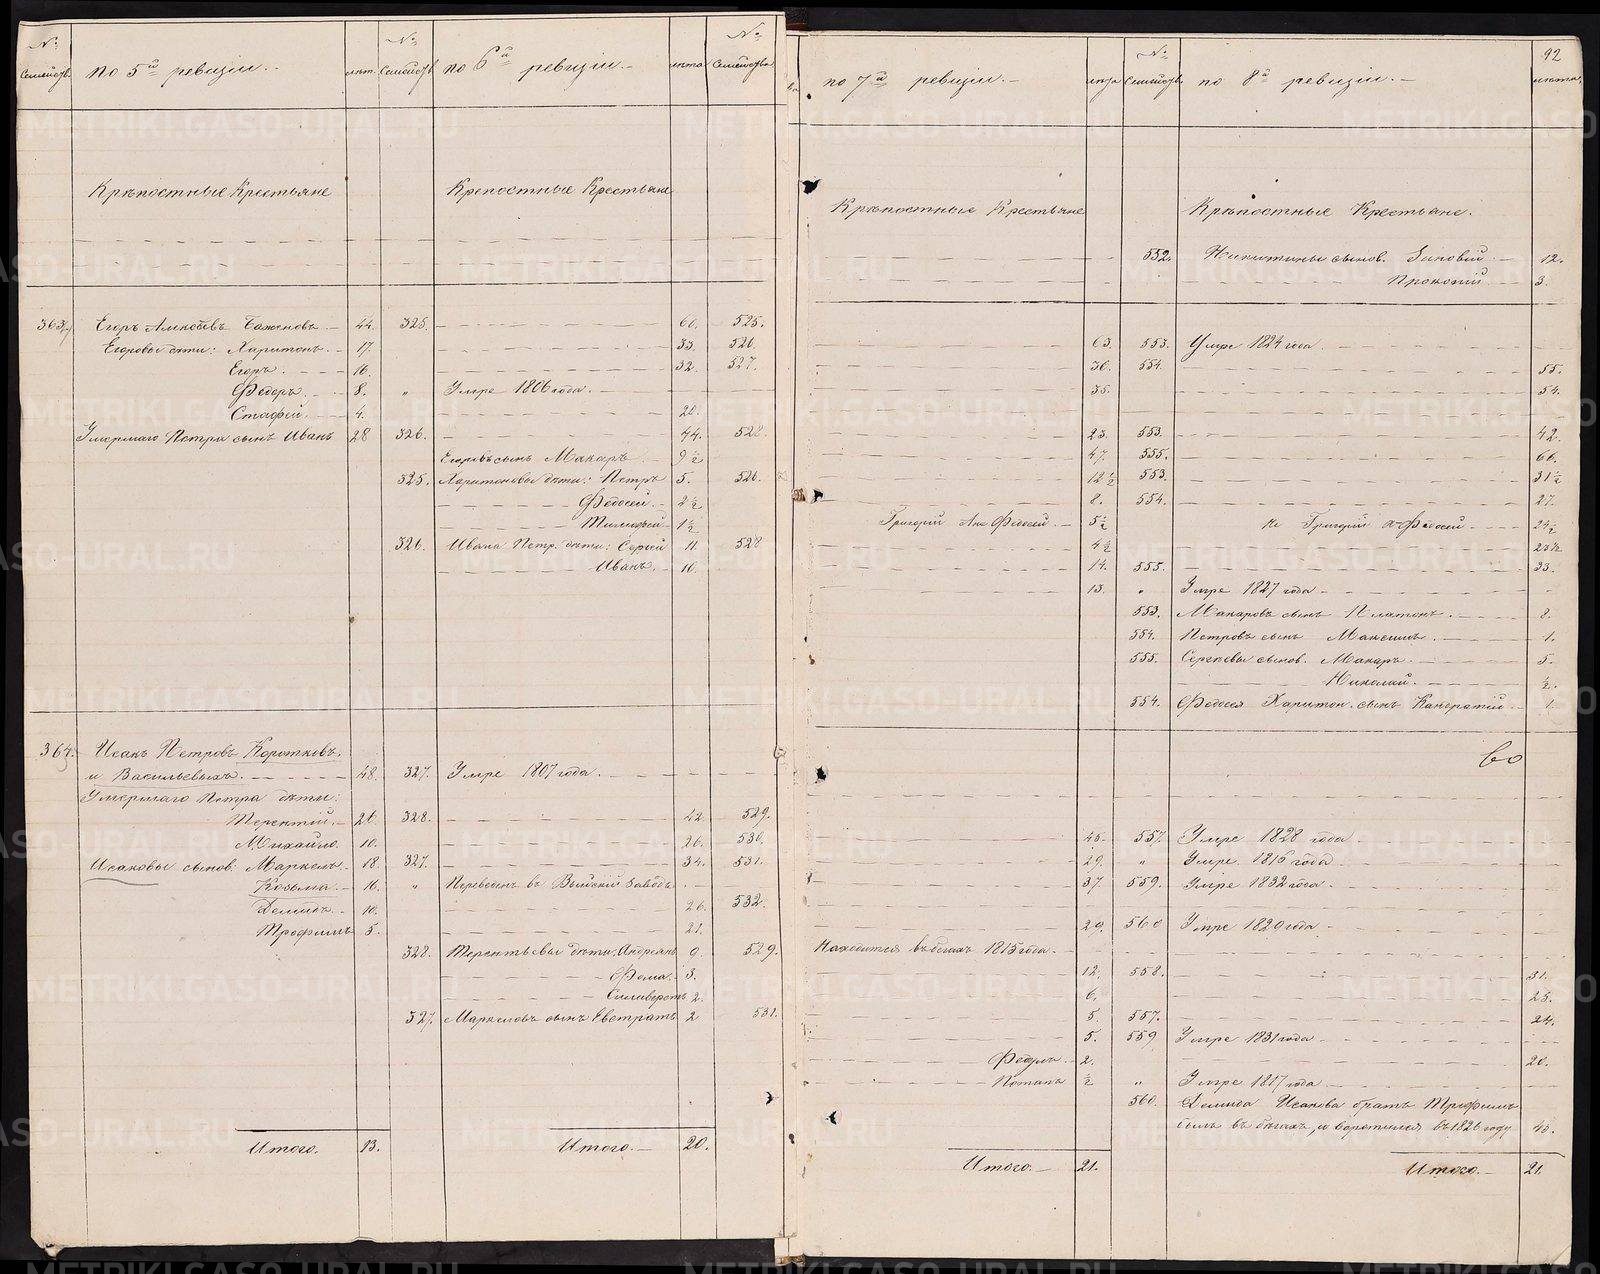 № Семейств. по 5й ревизіи. лѣт. № Семейств. по 6й ревизіи. лѣта № Семейства
Крѣпостные Крестьяне Крепостные Крестьяне
363 Егоръ Алексѣевъ Баженовъ 44. 325. 60. 525.
Егоровы дѣти: Харитонъ. 17. 33. 526.
Егоръ. 16. 32. 527.
Федоръ. 8. " Умре 1806 года.
Стафей. 4. 20.
Умершаго Петра сынъ Иванъ 28 326. 44. 528.
Егоровъ сынъ Макаръ 9½
325. Харитоновы дѣти: Петръ 5. 526.
Федосей. 2½
Тимофей 1½
326. Ивана Петр. дѣти: Сергѣй 11. 528
Иванъ. 10.
364. Исакъ Петровъ Коротковъ,
и Васильевыхъ. 48. 327. Умре 1807 года.
Умершаго Петра дѣти:
Терентій. 26. 328. 42. 529.
Михайло. 10. 26. 530.
Исаковы сынов. Маркелъ. 18. 327. 34. 531.
Козьма. 16. " Переведенъ въ Выйский заводъ.
Демидъ. 10. 26. 532.
Трофимъ 5. 21.
328. Терентьевы дѣти: Андреянъ 9. 529.
Фома. 3.
Селиверстъ 2.
327. Маркеловъ сынъ Евстратъ 2 531.
Итого. 13. Итого. 20.
92
по 7й ревизіи. лѣта № Семейств. по 8й ревизіи. лѣта.
Крѣпостные Крестьяне Крѣпостные Крестьяне.
552. Никитины сынов. Зиновій 12.
Прокопій 3.
63. 553. Умре 1824 года.
36. 554. 55.
35. 54.
23. 553. 42.
47. 555. 66.
12½ 553. 31½
8. 554. 27.
Григорій А не Федосей. 5½ не Григорій а Федосей 24½
4½ 23½
14. 555. 33.
13. " Умре 1827 года
553. Макаровъ сынъ Платонъ. 8.
554. Петровъ сынъ Максимъ. 1.
555. Сергѣевы сынов. Макаръ. 5.
Николай. ½.
554. Федосея Харитон. сынъ Кандратій 1.
45. 557. Умре 1828 года
29. " Умре. 1816 года
37. 559. Умре 1832 года
29. 560 Умре 1829 года
Находится въ бѣгахъ 1815 года.
12. 558. 31.
6. 25.
5. 557. 24.
5. 559 Умре 1831 года
Федулъ. 2. 20.
Потапъ ½ " Умре 1817 года
560. Демида Исакова братъ Трофимъ
былъ въ бѣгахъ, и воротился въ 1826 году 43.
Итого. 21. Итого. 21.
METRIKI.GASO-URAL.RU